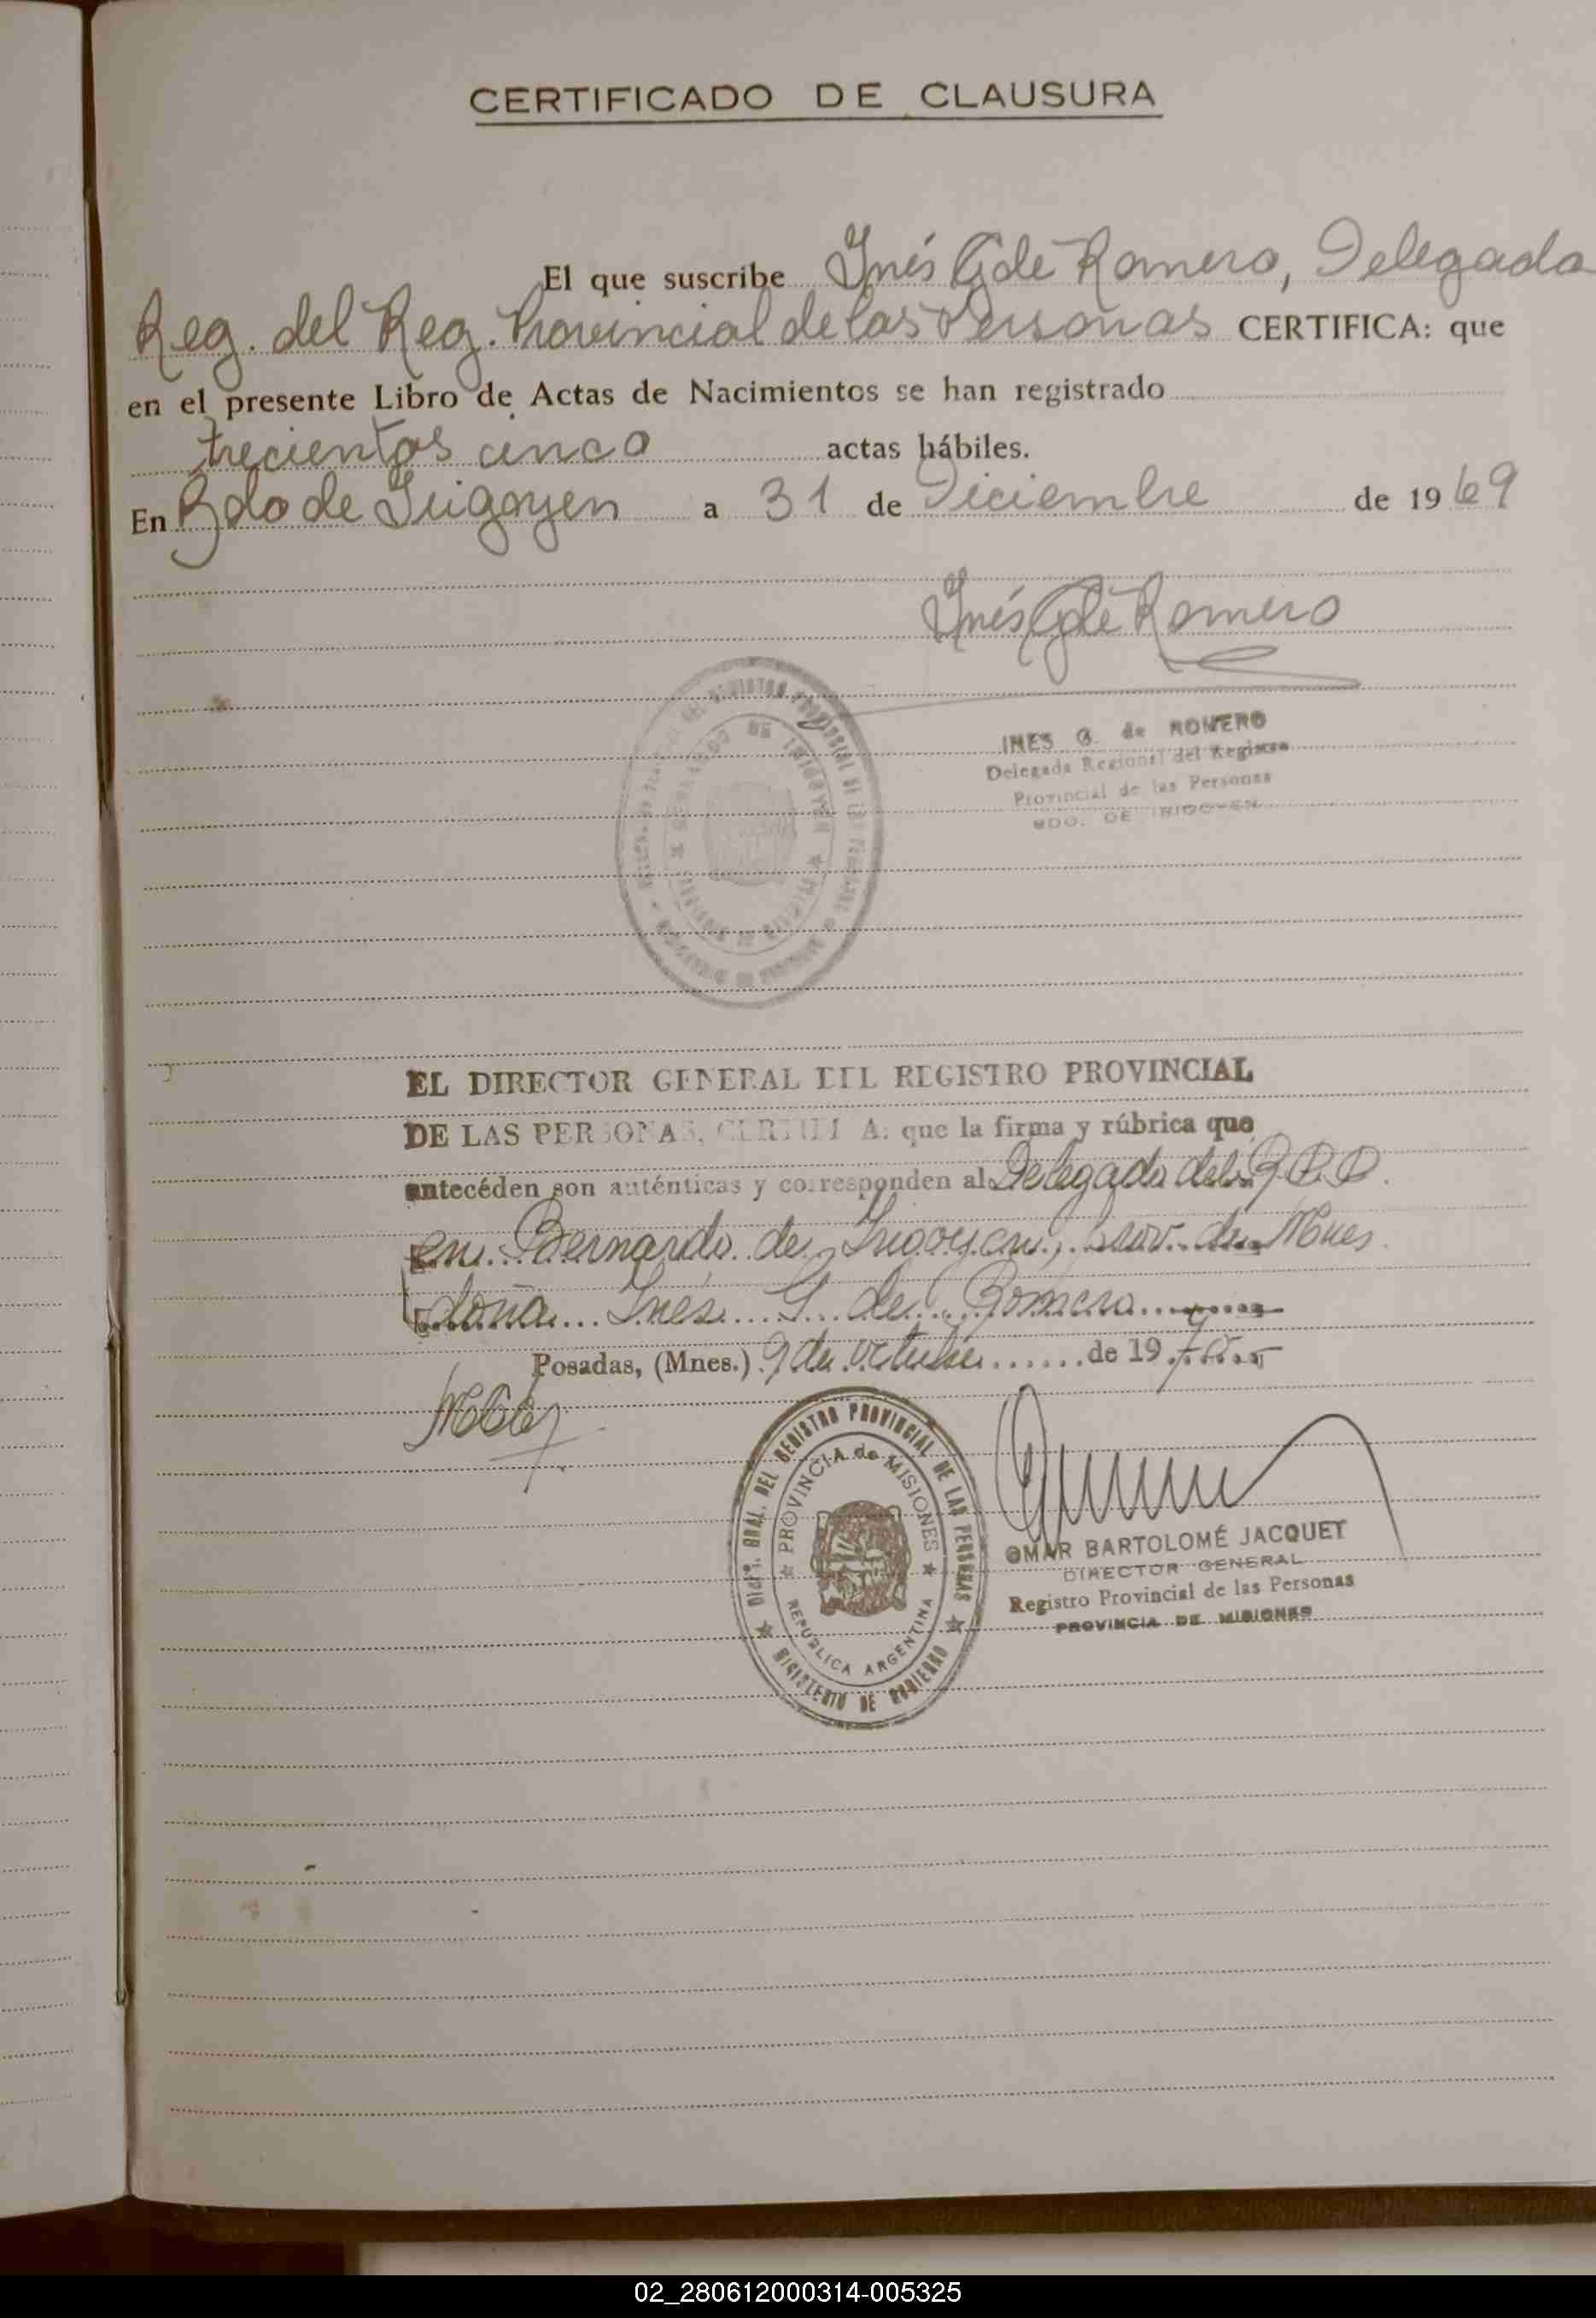 CERTIFICADO DE CLAUSURA
El que suscribe Inés G de Romero, Delegada
Reg. del Reg. Provincial de las Personas CERTIFICA: que
en el presente Libro de Actas de Nacimientos se han registrado
trecientos cinco actas hábiles.
En Bdo de Irigoyen a 31 de Diciembre de 1969
Inés G de Romero
INES G. de ROMERO
Delegada Regional del Registro
Provincial de las Personas
BDO. DE IRIGOYEN
EL DIRECTOR GENERAL DEL REGISTRO PROVINCIAL
DE LAS PERSONAS, CERTIFICA: que la firma y rúbrica que
antecéden son auténticas y corresponden al Delegada del R.P.P.
en Bernardo de Irigoyen, prov. de Mnes.
doña Inés G. de Romero
Posadas, (Mnes.) 9 de octubre de 19
DIRC. GRAL. DEL REGISTRO PROVINCIAL DE LAS PERSONAS
PROVINCIA de MISIONES
REPUBLICA ARGENTINA
MINISTERIO DE GOBIERNO
OMAR BARTOLOMÉ JACQUET
DIRECTOR GENERAL
Registro Provincial de las Personas
PROVINCIA DE MISIONES
02_280612000314-005325